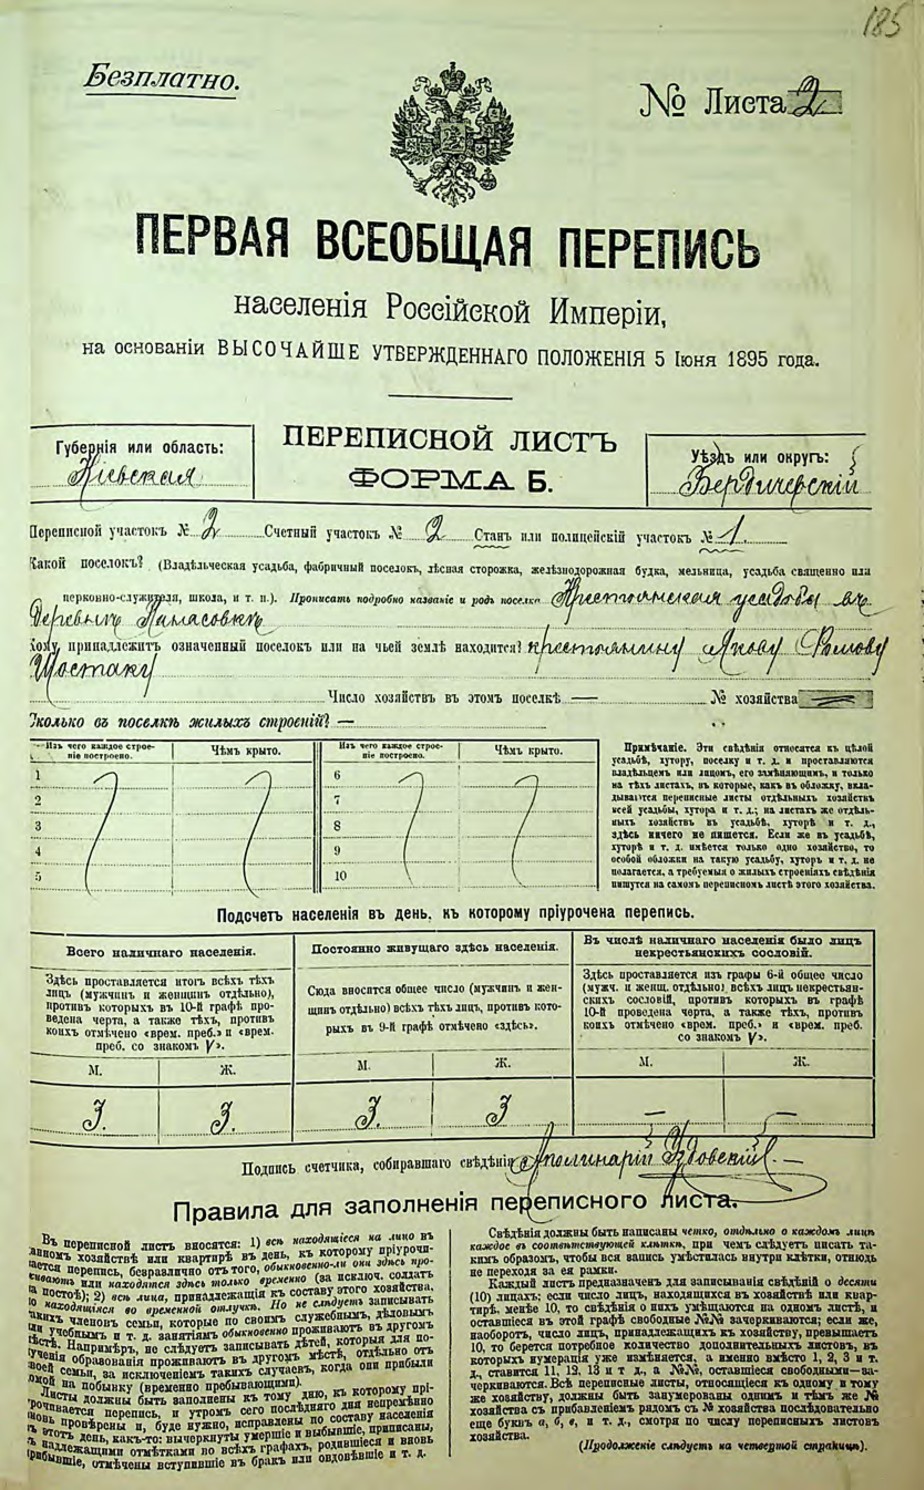 185
Безплатно.
№ Листа 2
ПЕРВАЯ ВСЕОБЩАЯ ПЕРЕПИСЬ
населенія Россійской Имперіи,
на основаніи ВЫСОЧАЙШЕ УТВЕРЖДЕННАГО ПОЛОЖЕНІЯ 5 Іюня 1895 года.
Губернія или область:
Кіевская
ПЕРЕПИСНОЙ ЛИСТЪ
ФОРМА Б.
Уѣздъ или округъ:
Бердичевскій
Переписной участокъ № 2 Счетный участокъ № 2 Станъ или полицейскій участокъ № 1.
Какой поселокъ? (Владѣльческая усадьба, фабричный поселокъ, лѣсная сторожка, желѣзнодорожная будка, мельница, усадьба священно или
церковно-служителя, школа, и т. п.). Прописать подробно названіе и родъ поселка Крестьянская усадьба въ
Деревнѣ
Кому принадлежитъ означенный поселокъ или на чьей землѣ находится? крестьянину Якову
Шостаку
Число хозяйствъ въ этомъ поселкѣ — № хозяйства
Сколько въ поселкѣ жилыхъ строеній? —
Изъ чего каждое строе-
ніе построено.
Чѣмъ крыто.
Изъ чего каждое строе-
ніе построено.
Чѣмъ крыто.
1
2
3
4
5
6
7
8
9
10
Примѣчаніе. Эти свѣдѣнія относятся къ цѣлой
усадьбѣ, хутору, поселку и т. д. и проставляются
владѣльцемъ или лицомъ, его замѣняющимъ, и только
на тѣхъ листахъ, въ которые, какъ въ обложку, вкла-
дываются переписные листы отдѣльныхъ хозяйствъ
всей усадьбы, хутора и т. д.; на листахъ же отдѣль-
ныхъ хозяйствъ въ усадьбѣ, хуторѣ и т. д.,
здѣсь ничего не пишется. Если же въ усадьбѣ,
хуторѣ и т. д. имѣется только одно хозяйство, то
особой обложки на такую усадьбу, хуторъ и т. д. не
полагается, а требуемыя о жилыхъ строеніяхъ свѣдѣнія
пишутся на самомъ переписномъ листѣ этого хозяйства.
Подсчетъ населенія въ день, къ которому пріурочена перепись.
Всего наличнаго населенія.
Здѣсь проставляется итогъ всѣхъ тѣхъ
лицъ (мужчинъ и женщинъ отдѣльно),
противъ которыхъ въ 10-й графѣ про-
ведена черта, а также тѣхъ, противъ
коихъ отмѣчено «врем. преб.» и «врем.
преб. со знакомъ V».
М. Ж.
3. 3.
Постоянно живущаго здѣсь населенія.
Сюда вносится общее число (мужчинъ и жен-
щинъ отдѣльно) всѣхъ тѣхъ лицъ, противъ кото-
рыхъ въ 9-й графѣ отмѣчено «здѣсь».
М. Ж.
3. 3
Въ числѣ наличнаго населенія было лицъ
некрестьянскихъ сословій.
Здѣсь проставляется изъ графы 6-й общее число
(мужч. и женщ. отдѣльно) всѣхъ лицъ некрестьян-
скихъ сословій, противъ которыхъ въ графѣ
10-й проведена черта, а также тѣхъ, противъ
коихъ отмѣчено «врем. преб.» и «врем. преб.
со знакомъ V».
М. Ж.
— —
Подпись счетчика, собиравшаго свѣдѣнія Аполинарій
Правила для заполненія переписного листа.
Въ переписной листъ вносятся: 1) всѣ находящіеся на лицо въ
данномъ хозяйствѣ или квартирѣ въ день, къ которому пріурочи-
вается перепись, безразлично отъ того, обыкновенно-ли они здѣсь про-
живаютъ или находятся здѣсь только временно (за исключ. солдатъ
на постоѣ); 2) всѣ лица, принадлежащія къ составу этого хозяйства,
но находящіяся во временной отлучкѣ. Но не слѣдуетъ записывать
такихъ членовъ семьи, которые по своимъ служебнымъ, дѣловымъ
или учебнымъ и т. д. занятіямъ обыкновенно проживаютъ въ другомъ
мѣстѣ. Напримѣръ, не слѣдуетъ записывать дѣтей, которыя для по-
лученія образованія проживаютъ въ другомъ мѣстѣ, отдѣльно отъ
своей семьи, за исключеніемъ такихъ случаевъ, когда они прибыли
домой на побывку (временно пребывающими).
Листы должны быть заполнены къ тому дню, къ которому прі-
урочивается перепись, и утромъ сего послѣдняго дня непремѣнно
вновь провѣрены и, буде нужно, исправлены по составу населенія
въ этотъ день, какъ-то: вычеркнуты умершіе и выбывшіе, приписаны,
съ надлежащими отмѣтками по всѣхъ графахъ, родившіеся и вновь
прибывшіе, отмѣчены вступившіе въ бракъ или овдовѣвшіе и т. д.
Свѣдѣнія должны быть написаны четко, отдѣльно о каждомъ лицѣ
каждое въ соотвѣтствующей клѣткѣ, при чемъ слѣдуетъ писать та-
кимъ образомъ, чтобы вся запись умѣстилась внутри клѣтки, отнюдь
не переходя за ея рамки.
Каждый листъ предназначенъ для записыванія свѣдѣній о десяти
(10) лицахъ; если число лицъ, находящихся въ хозяйствѣ или квар-
тирѣ, менѣе 10, то свѣдѣнія о нихъ умѣщаются на одномъ листѣ, и
оставшіеся въ этой графѣ свободные №№ зачеркиваются; если же,
наоборотъ, число лицъ, принадлежащихъ къ хозяйству, превышаетъ
10, то берется потребное количество дополнительныхъ листовъ, въ
которыхъ нумерація уже измѣняется, а именно вмѣсто 1, 2, 3 и т.
д., ставится 11, 12, 13 и т д., а №№, оставшіеся свободными—за-
черкиваются. Всѣ переписные листы, относящіеся къ одному и тому
же хозяйству, должны быть занумерованы однимъ и тѣмъ же №
хозяйства съ прибавленіемъ рядомъ съ № хозяйства послѣдовательно
еще буквъ а, б, в, и т. д., смотря по числу переписныхъ листовъ
хозяйства.
(Продолженіе слѣдуетъ на четвертой страницѣ).